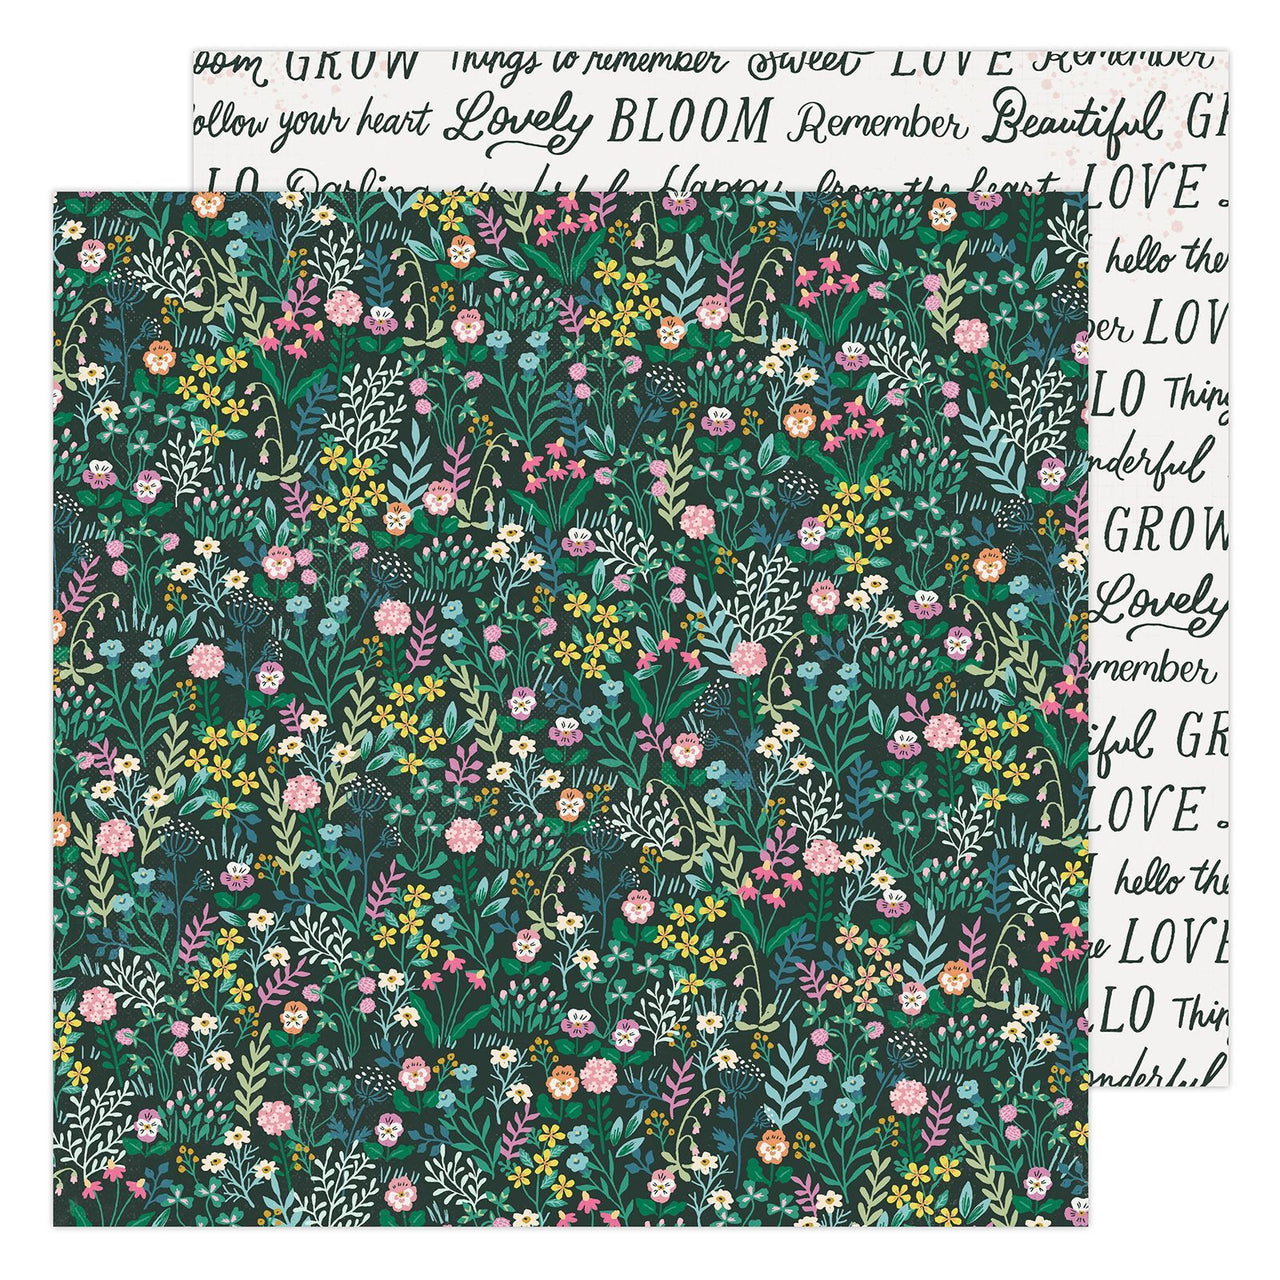 oom GROW Things to remember Sweet LOVE Remember
ollow your heart Lovely BLOOM Remember Beautiful GR
LO Darling wonderful Happy from the heart LOVE
hello the
er LOV
LO Thing
nderful
GROW
Lovely
emember
iful GR
LOVE
hello the
e LOVE
LO Thin
onderful